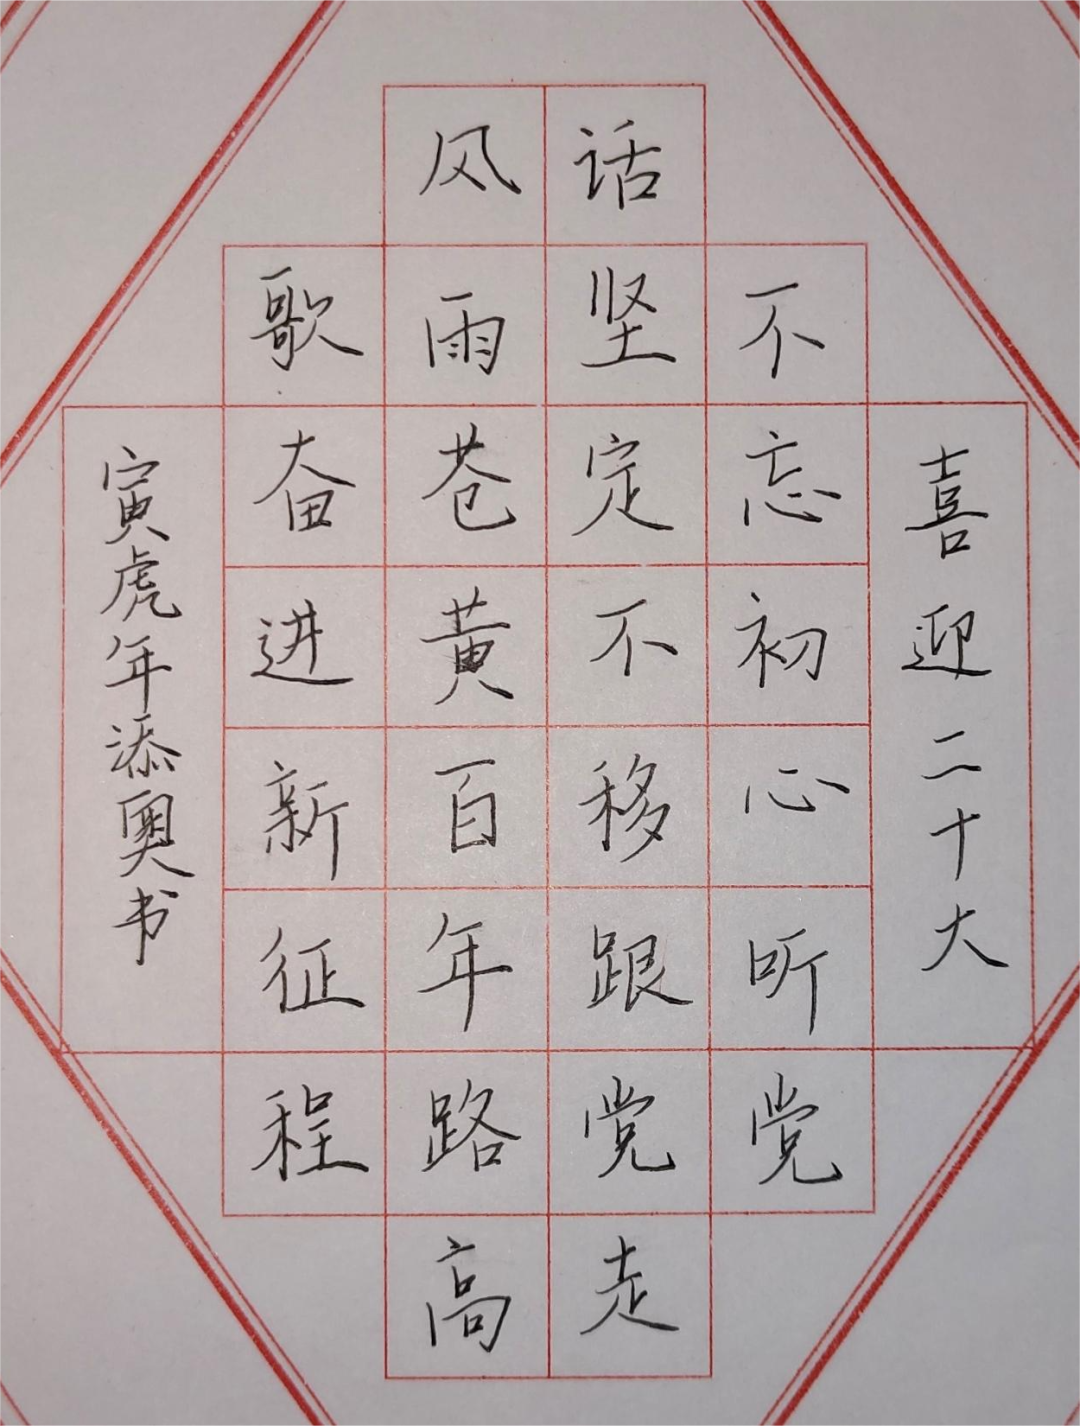 喜迎二十大
不忘初心听党
话坚定不移跟党走
风雨苍黄百年路高
歌奋进新征程
寅虎年添奥书